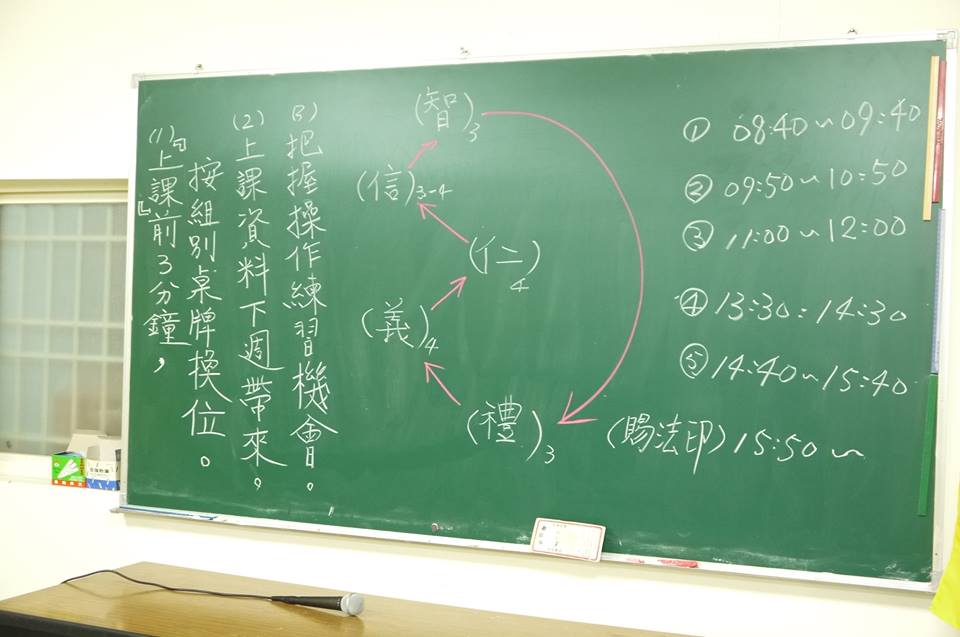 (1)「上課前3分鐘」,
按組別桌牌換位。
(2)上課資料下週帶來。
(3)把握操作練習機會。
(智)3
(信)3-4
(仁)4
(義)4
(禮)3
① 08:40~09:40
② 09:50~10:50
③ 11:00~12:00
④ 13:30:14:30
⑤ 14:40~15:40
(賜法印)15:50~